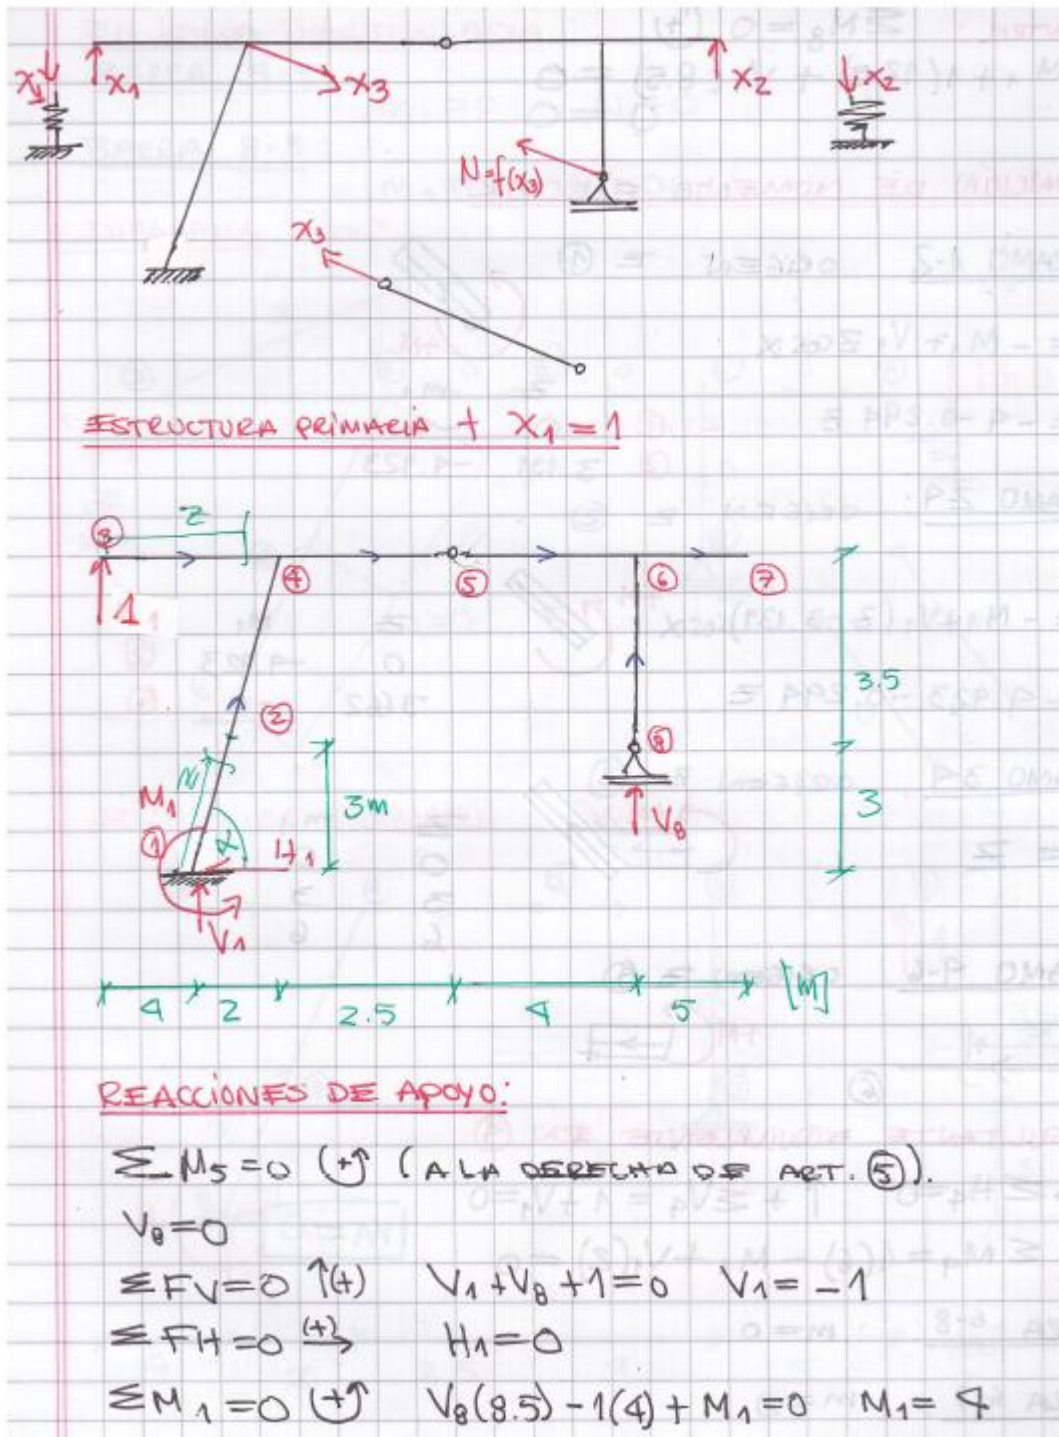 X₁
X₃
X₂
X₂
X₁
N=f(X₃)
X₃
ESTRUCTURA PRIMARIA + X₁ = 1
③
Z
④
⑤
⑥
⑦
1
②
3.5
Z
M₁
①
α
3m
⑧
V₈
3
H₁
V₁
4 2 2.5 4 5 [M]
REACCIONES DE APOYO:
ΣM₅=0 (+↺) (A LA DERECHA DE ART. ⑤).
V₈=0
ΣFV=0 ↑(+) V₁+V₈+1=0 V₁=-1
ΣFH=0 (+)→ H₁=0
ΣM₁=0 (+↺) V₈(8.5)-1(4)+M₁=0 M₁=4